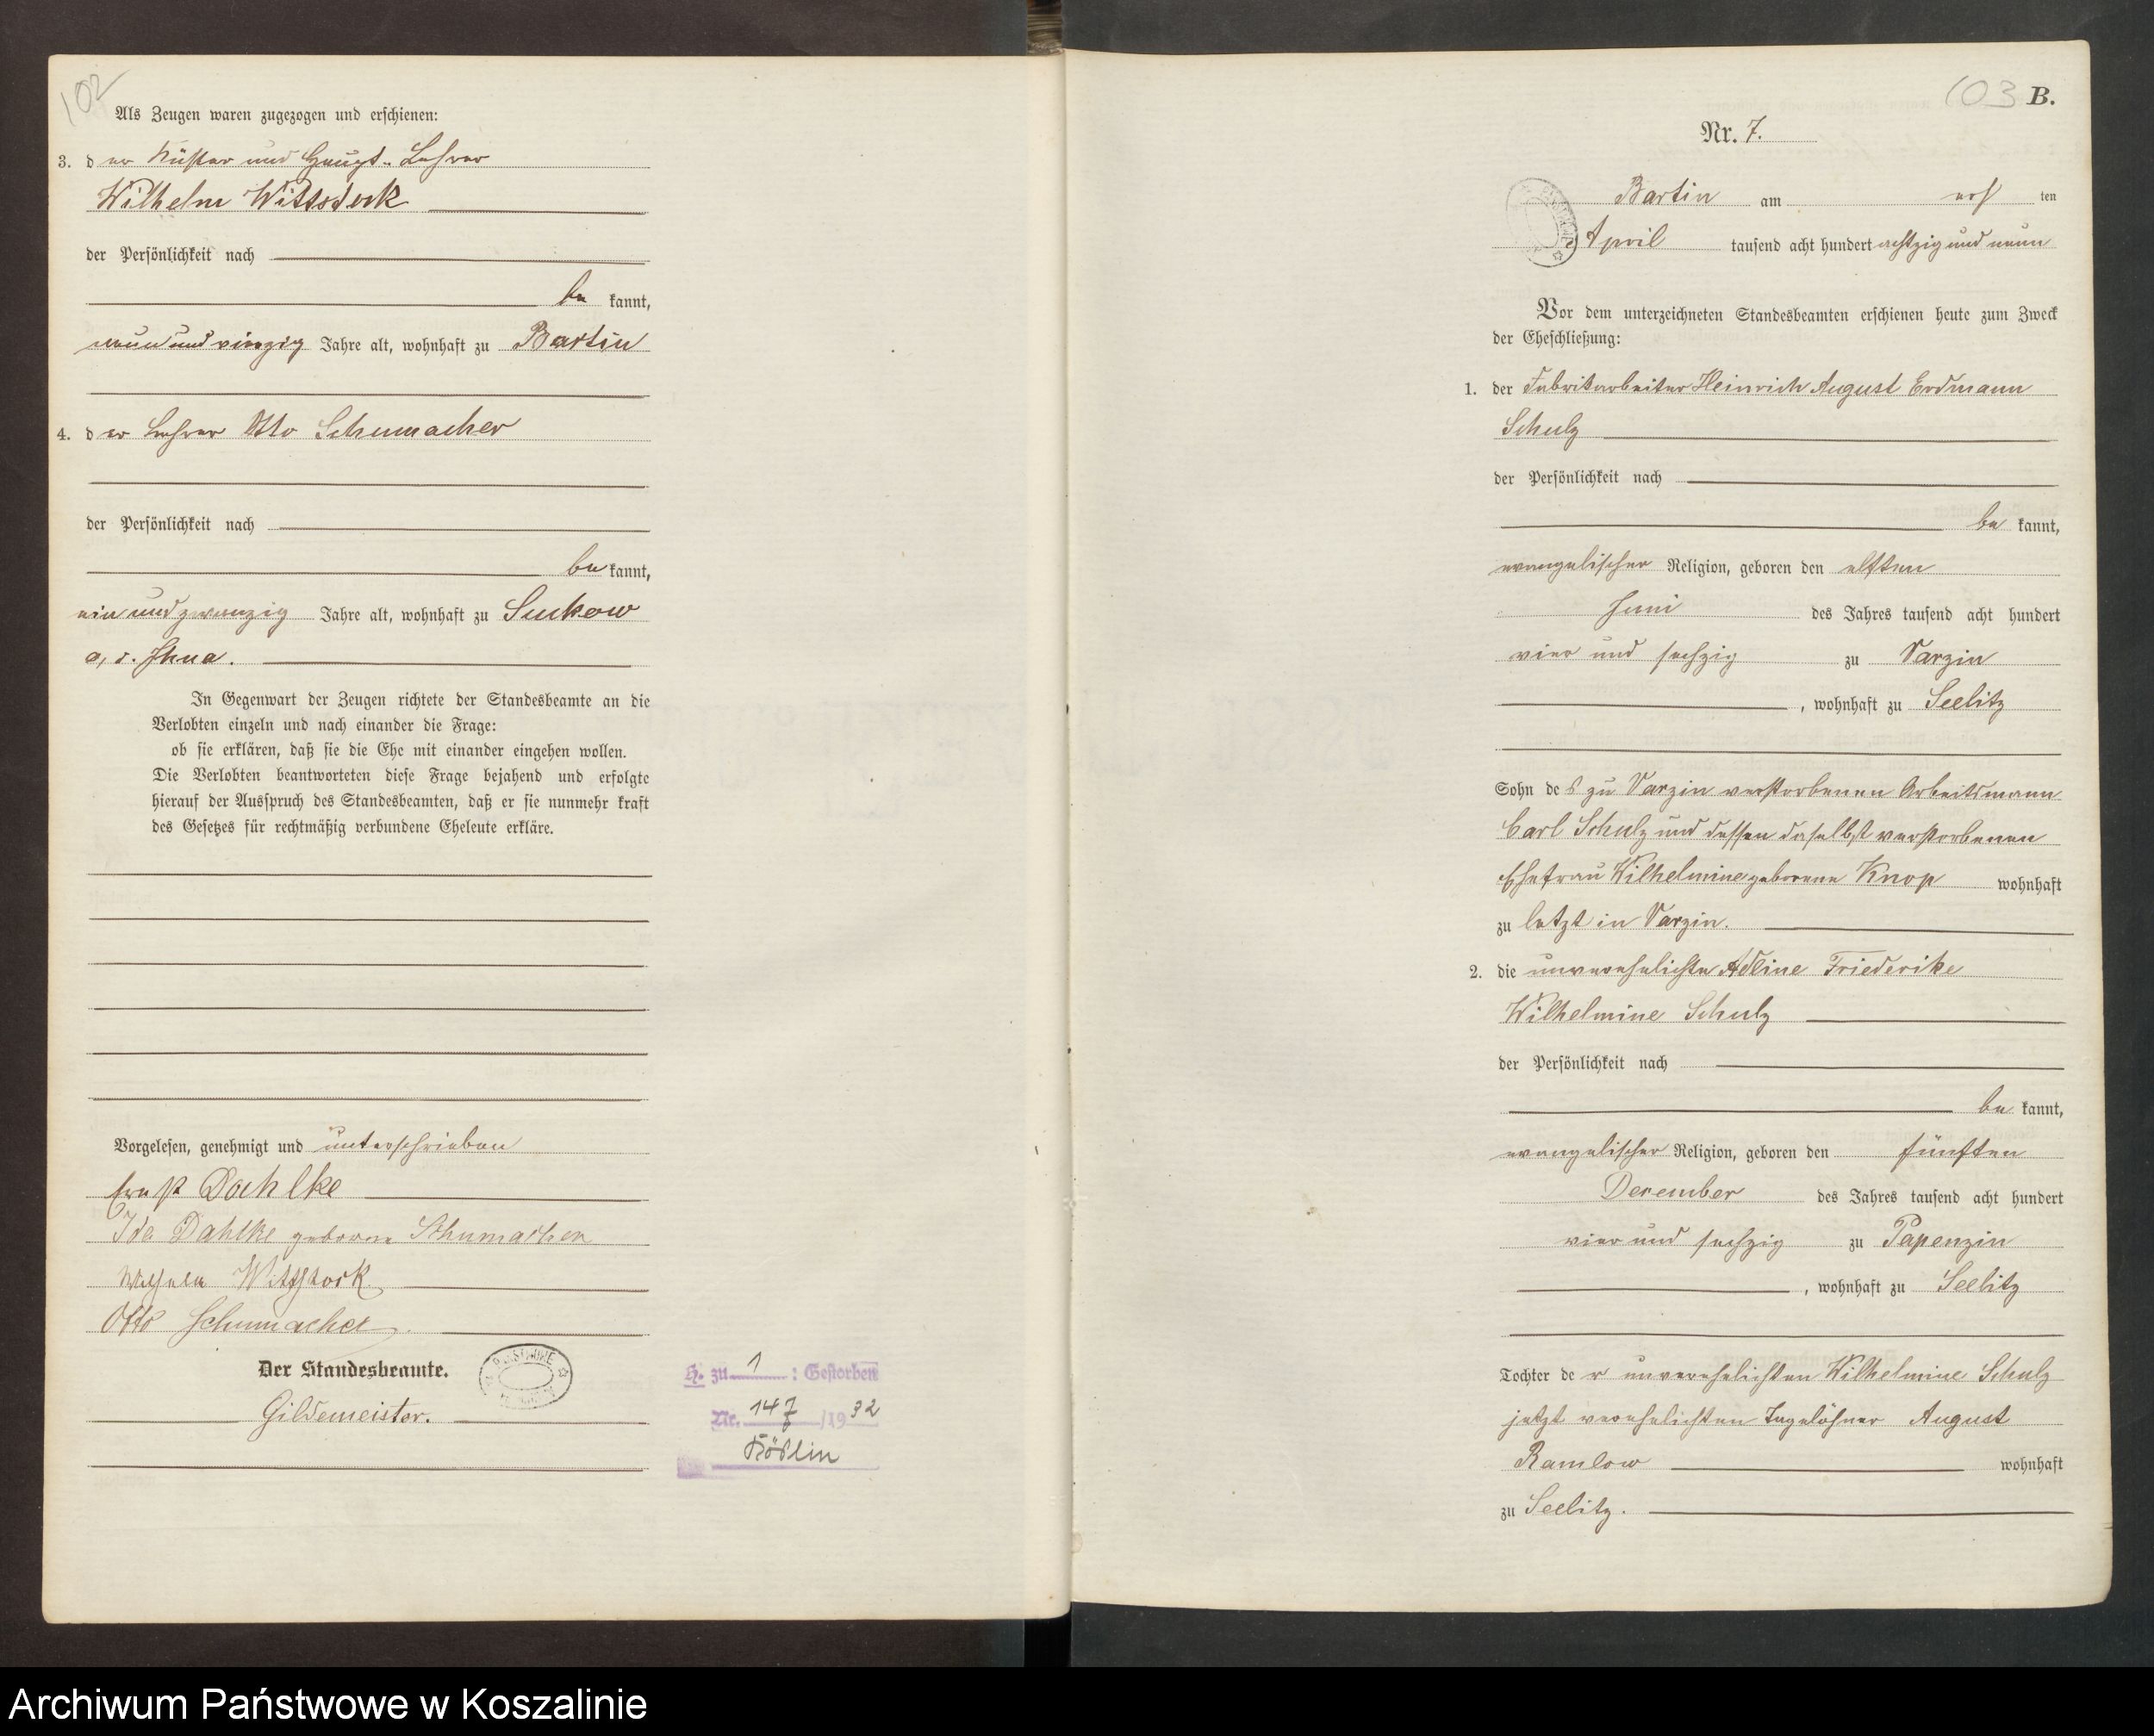 102
Als Zeugen waren zugezogen und erschienen:
3. der Küster und Haupt-Lehrer
Wilhelm Wittstock
der Persönlichkeit nach
be kannt,
neun und vierzig Jahre alt, wohnhaft zu Bartin
4. der Lehrer Otto Schumacher
der Persönlichkeit nach
be kannt,
ein und zwanzig Jahre alt, wohnhaft zu Suckow
a. d. Ihna.
In Gegenwart der Zeugen richtete der Standesbeamte an die
Verlobten einzeln und nach einander die Frage:
ob sie erklären, daß sie die Ehe mit einander eingehen wollen.
Die Verlobten beantworteten diese Frage bejahend und erfolgte
hierauf der Ausspruch des Standesbeamten, daß er sie nunmehr kraft
des Gesetzes für rechtmäßig verbundene Eheleute erkläre.
Vorgelesen, genehmigt und unterschrieben
Ernst Dahlke
Ida Dahlke geborene Schumacher
Wilhelm Wittstock
Otto Schumacher.
Der Standesbeamte.
Gildemeister.
H. zu 1 : Gestorben
Nr. 147 /19 32
Köslin
103 B.
Nr. 7.
Bartin am erst ten
April tausend acht hundert achtzig und neun
Vor dem unterzeichneten Standesbeamten erschienen heute zum Zweck
der Eheschließung:
1. der Fabrikarbeiter Heinrich August Erdmann
Schulz
der Persönlichkeit nach
be kannt,
evangelischer Religion, geboren den elften
Juni des Jahres tausend acht hundert
vier und sechzig zu Varzin
, wohnhaft zu Seelitz
Sohn des zu Varzin verstorbenen Arbeitsmann
Carl Schulz und dessen daselbst verstorbenen
Ehefrau Wilhelmine geborene Knop wohnhaft
zu letzt in Varzin.
2. die unverehelichte Adline Friederike
Wilhelmine Schulz
der Persönlichkeit nach
be kannt,
evangelischer Religion, geboren den fünften
December des Jahres tausend acht hundert
vier und sechzig zu Papenzin
, wohnhaft zu Seelitz
Tochter der unverehelichten Wilhelmine Schulz
jetzt verehelichten Tagelöhner August
Ramlow wohnhaft
zu Seelitz.
Archiwum Państwowe w Koszalinie